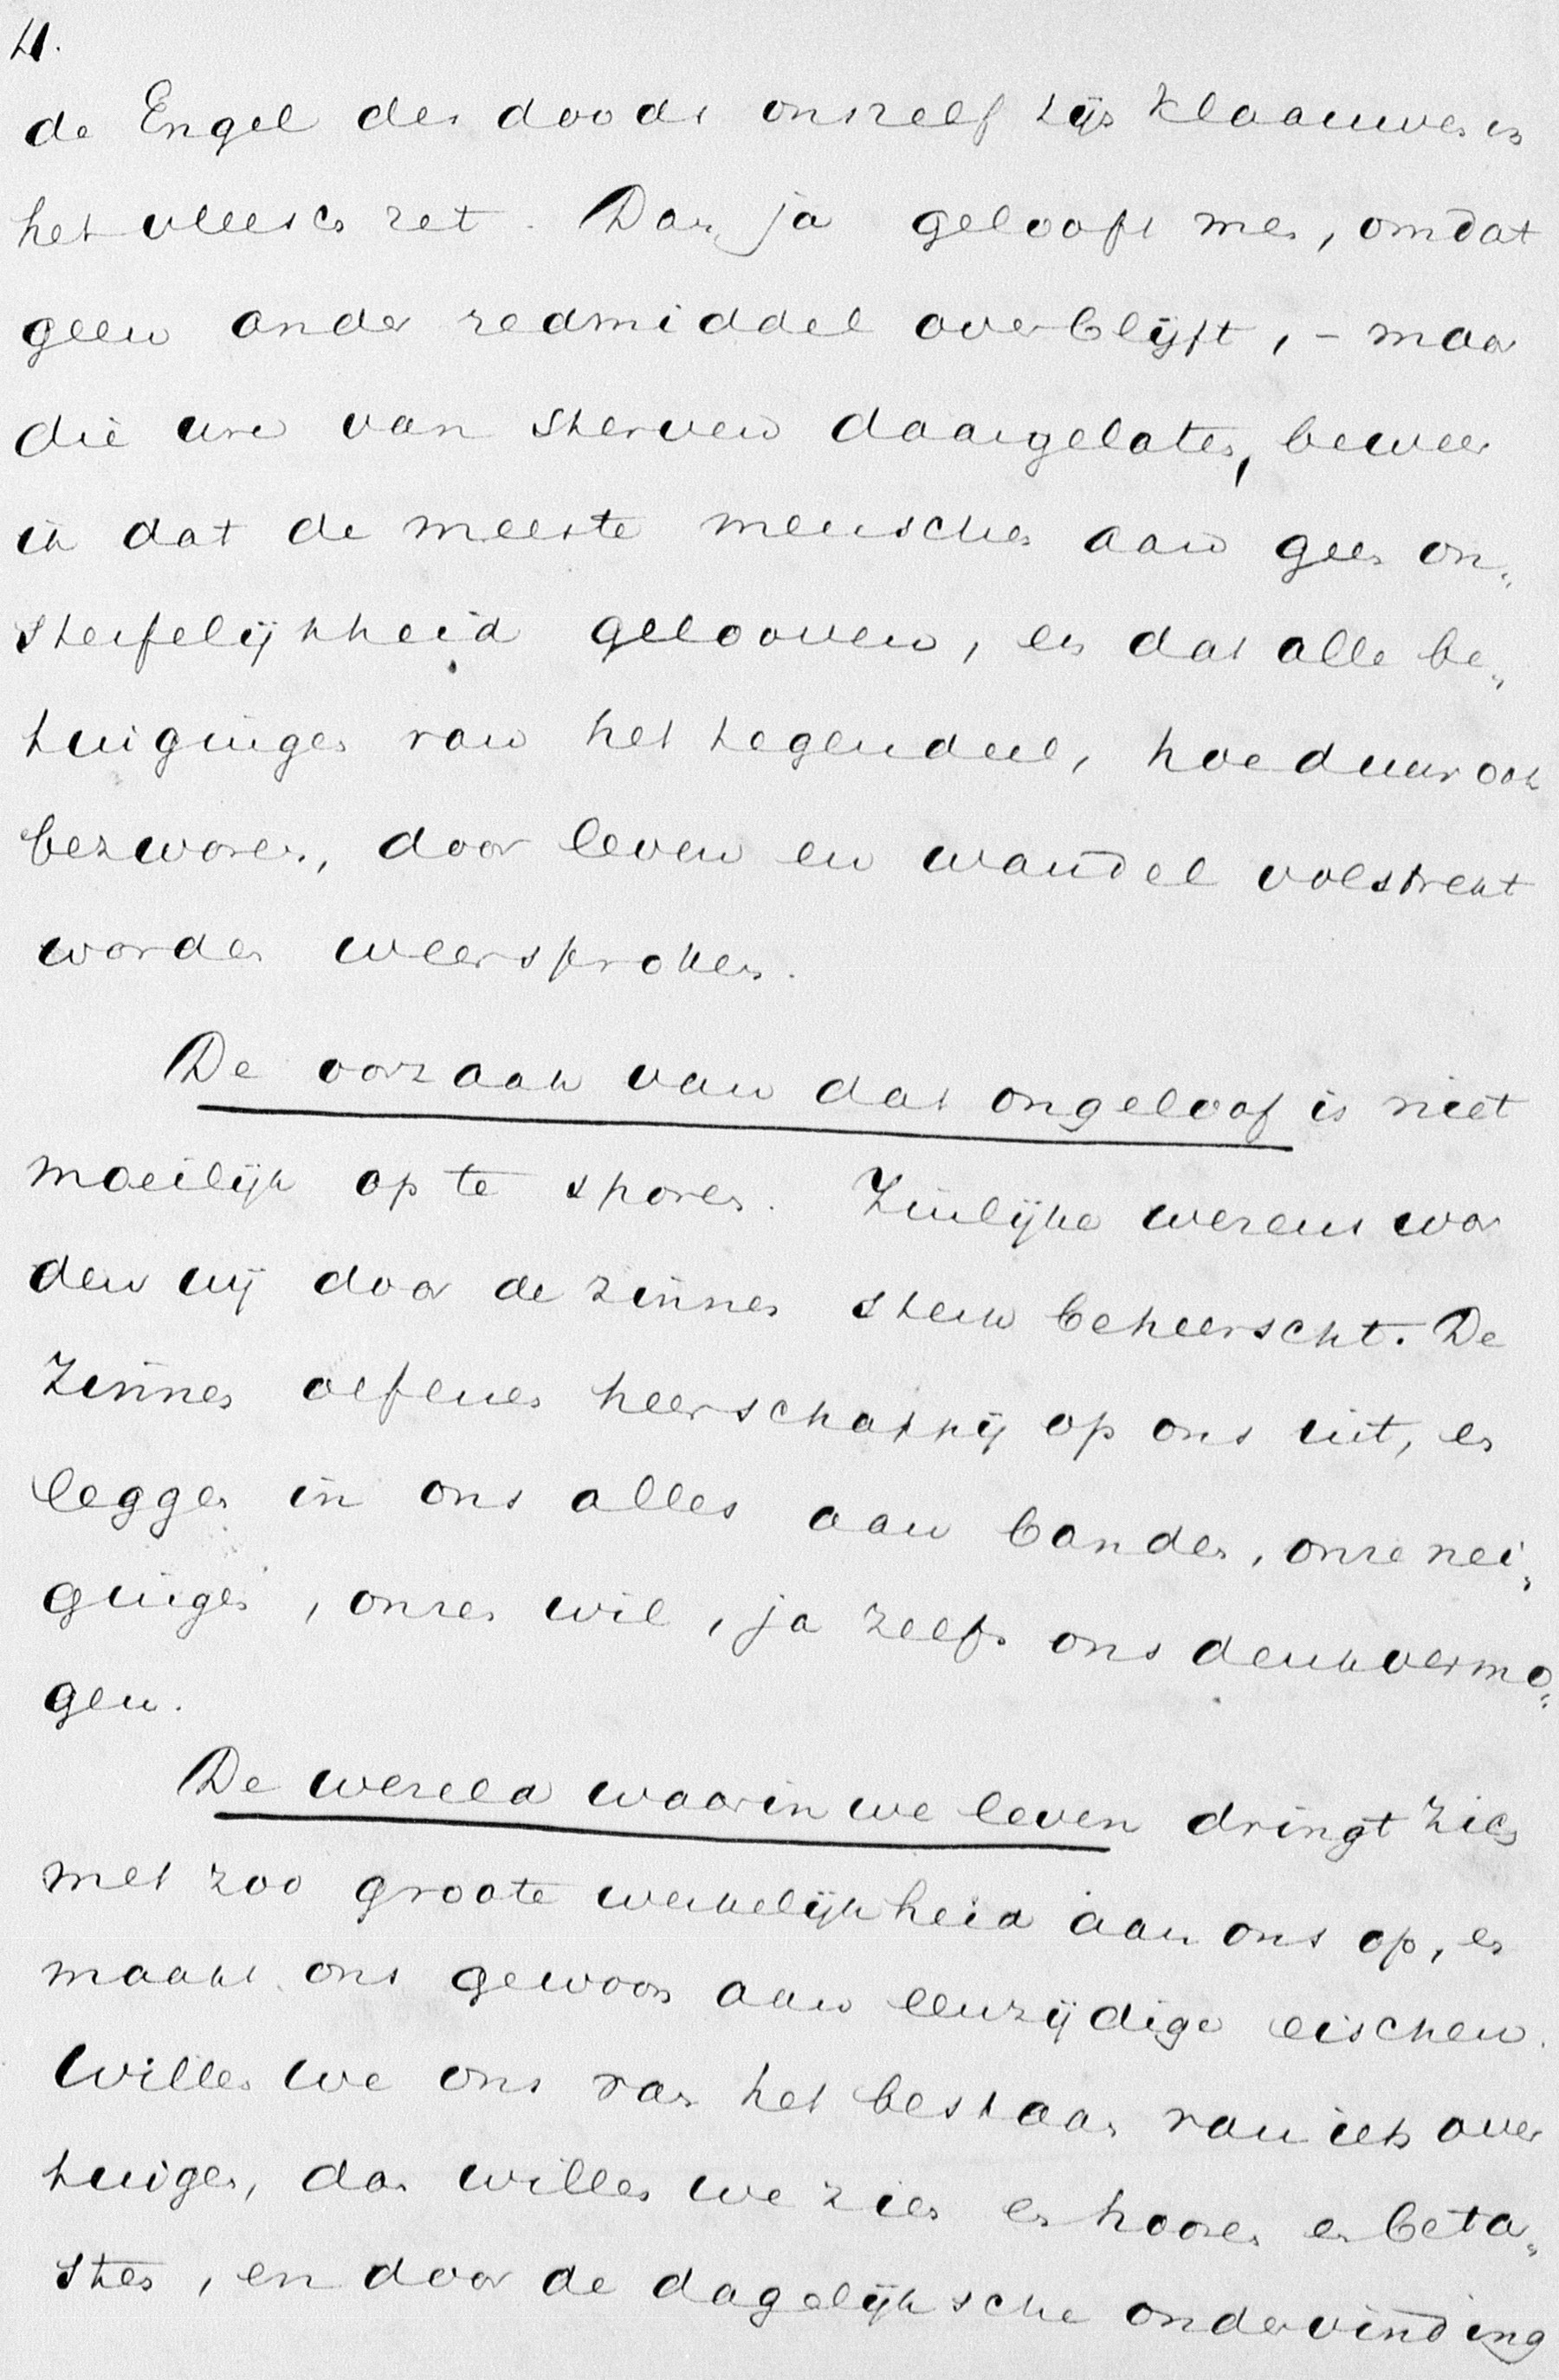 4.
de Engel des doods onszelf zijn klaauwen in
het vleesch zet. Dan ja gelooft men, omdat
geen ander redmiddel overblijft, - maar
die ure van sterven daargelaten, beweer
ik dat de meeste menschen aan geen on„
sterfelijkheid gelooven, en dat alle be„
tuigingen van het tegendeel, hoe duur ook
bezworen, door leven en wandel volstrekt
worden weersproken.
De oorzaak van dat ongeloof is niet
moeilijk op te sporen. Zinlijke wezens wor
den wij door de zinnen sterk beheerscht. De
zinnen oefenen heerschappij op ons uit, en
leggen in ons alles aan banden, onze nei„
gingen, onzen wil, ja zelfs ons denkvermo„
gen.
De wereld waarin we leven dringt zich
met zoo groote werkelijkheid aan ons op, en
maakt ons gewoon aan eenzijdige eischen.
Willen we ons van het bestaan van iets over
tuigen, dan willen we zien en hooren en beta„
sten, en door de dagelijksche ondervinding